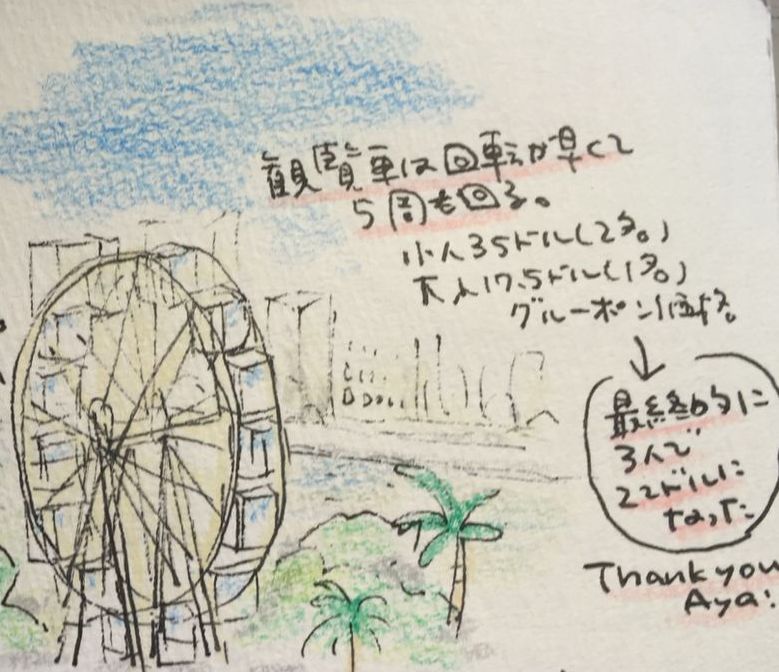 観覧車は回転が早くて
5周も回る。
小人35ドル(2名)
大人17.5ドル(1名)
グルーポン価格。
最終的に
3人で
22ドルに
なった
Thank you
Aya!